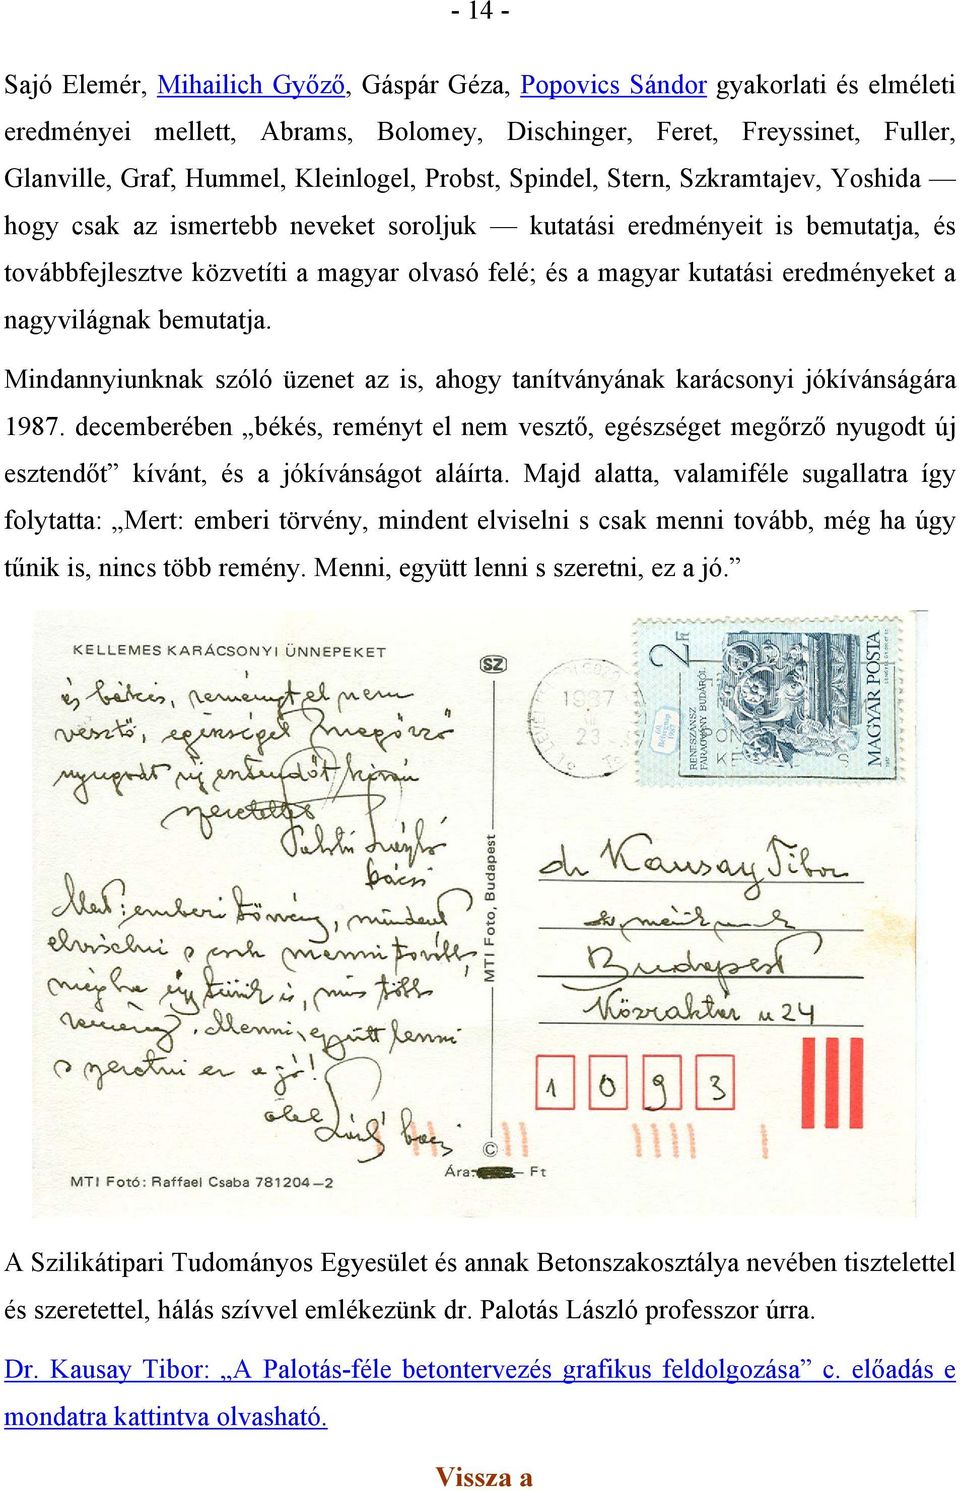 - 14 -
Sajó Elemér, Mihailich Győző, Gáspár Géza, Popovics Sándor gyakorlati és elméleti
eredményei mellett, Abrams, Bolomey, Dischinger, Feret, Freyssinet, Fuller,
Glanville, Graf, Hummel, Kleinlogel, Probst, Spindel, Stern, Szkramtajev, Yoshida —
hogy csak az ismertebb neveket soroljuk — kutatási eredményeit is bemutatja, és
továbbfejlesztve közvetíti a magyar olvasó felé; és a magyar kutatási eredményeket a
nagyvilágnak bemutatja.
Mindannyiunknak szóló üzenet az is, ahogy tanítványának karácsonyi jókívánságára
1987. decemberében „békés, reményt el nem vesztő, egészséget megőrző nyugodt új
esztendőt” kívánt, és a jókívánságot aláírta. Majd alatta, valamiféle sugallatra így
folytatta: „Mert: emberi törvény, mindent elviselni s csak menni tovább, még ha úgy
tűnik is, nincs több remény. Menni, együtt lenni s szeretni, ez a jó.”
KELLEMES KARÁCSONYI ÜNNEPEKET
SZ
és békés, reményt el nem
vesztő, egészséget megőrző
nyugodt új esztendőt kíván
szeretettel
Palotás László
bácsi
Mert: emberi törvény, mindent
elviselni s csak menni tovább,
még ha úgy tűnik is, nincs több
remény. Menni, együtt lenni
s szeretni ez a jó!
ölel László bácsi
MTI Fotó: Raffael Csaba 781204—2
MTI Foto, Budapest
©
Ára: — Ft
1987
23
2 Ft
RENESZÁNSZ
FARAGVÁNY BUDÁRÓL
MAGYAR POSTA
dr Kausay Tibor
Budapest
Közraktár u 24
1 0 9 3
A Szilikátipari Tudományos Egyesület és annak Betonszakosztálya nevében tisztelettel
és szeretettel, hálás szívvel emlékezünk dr. Palotás László professzor úrra.
Dr. Kausay Tibor: „A Palotás-féle betontervezés grafikus feldolgozása” c. előadás e
mondatra kattintva olvasható.
Vissza a